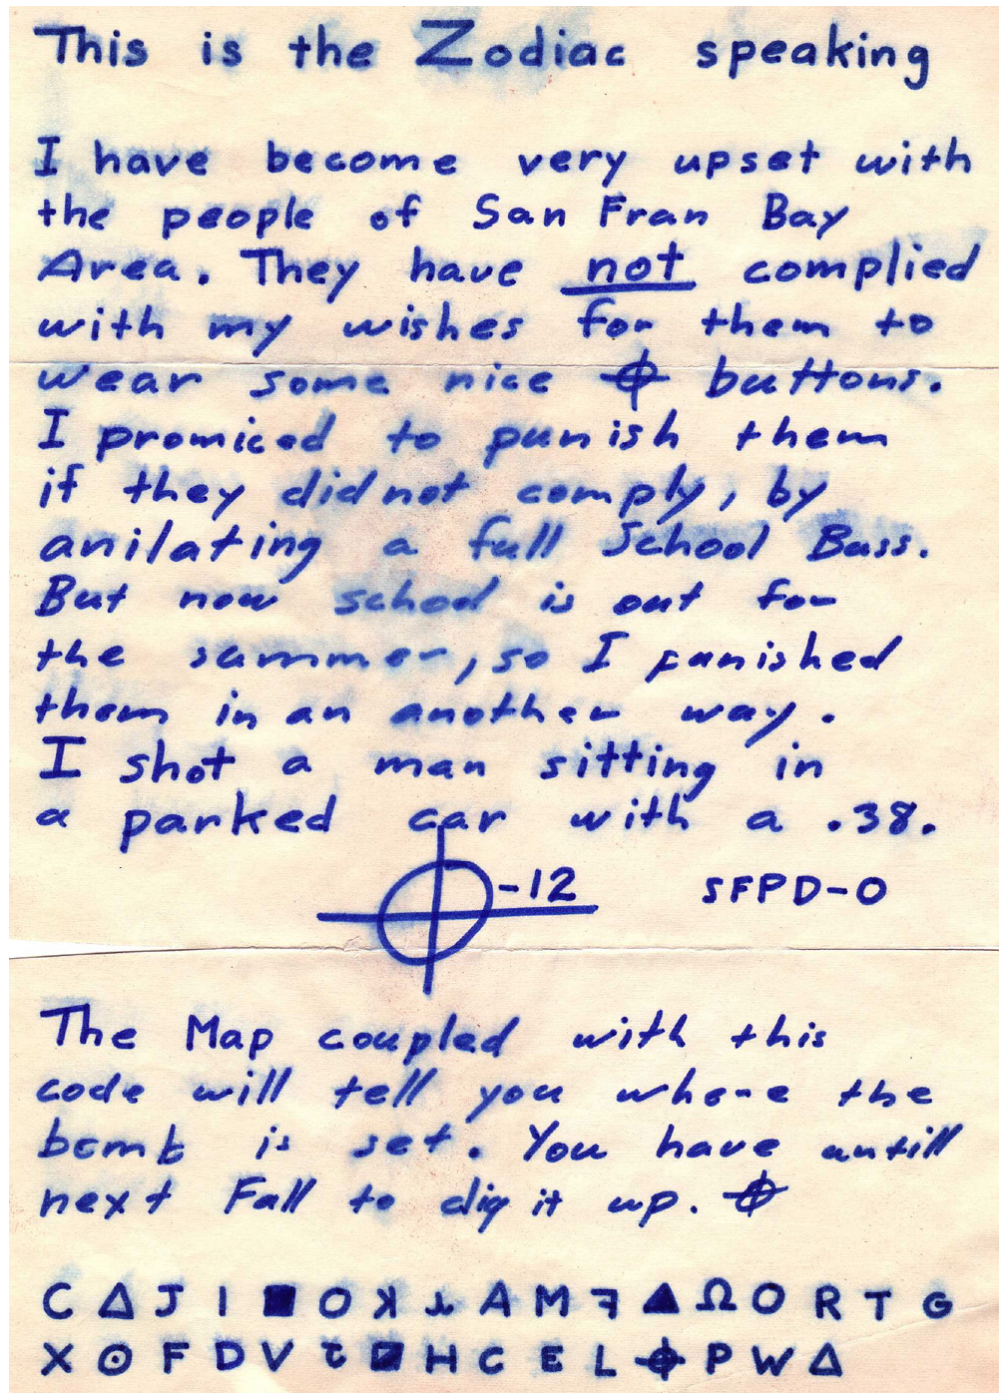 This is the Zodiac speaking
I have become very upset with
the people of San Fran Bay
Area. They have not complied
with my wishes for them to
wear some nice ⌖ buttons.
I promiced to punish them
if they did not comply, by
anilating a full School Buss.
But now school is out for
the summer, so I punished
them in an another way.
I shot a man sitting in
a parked car with a .38.
⌖-12 SFPD-0
The Map coupled with this
code will tell you where the
bomb is set. You have untill
next Fall to dig it up. ⌖
C Δ J I ■ O ꓘ ⅄ A M ꟻ ▲ Ω O R T G
X ⊙ F D V ౽ ◪ H C E L ⌖ P W Δ